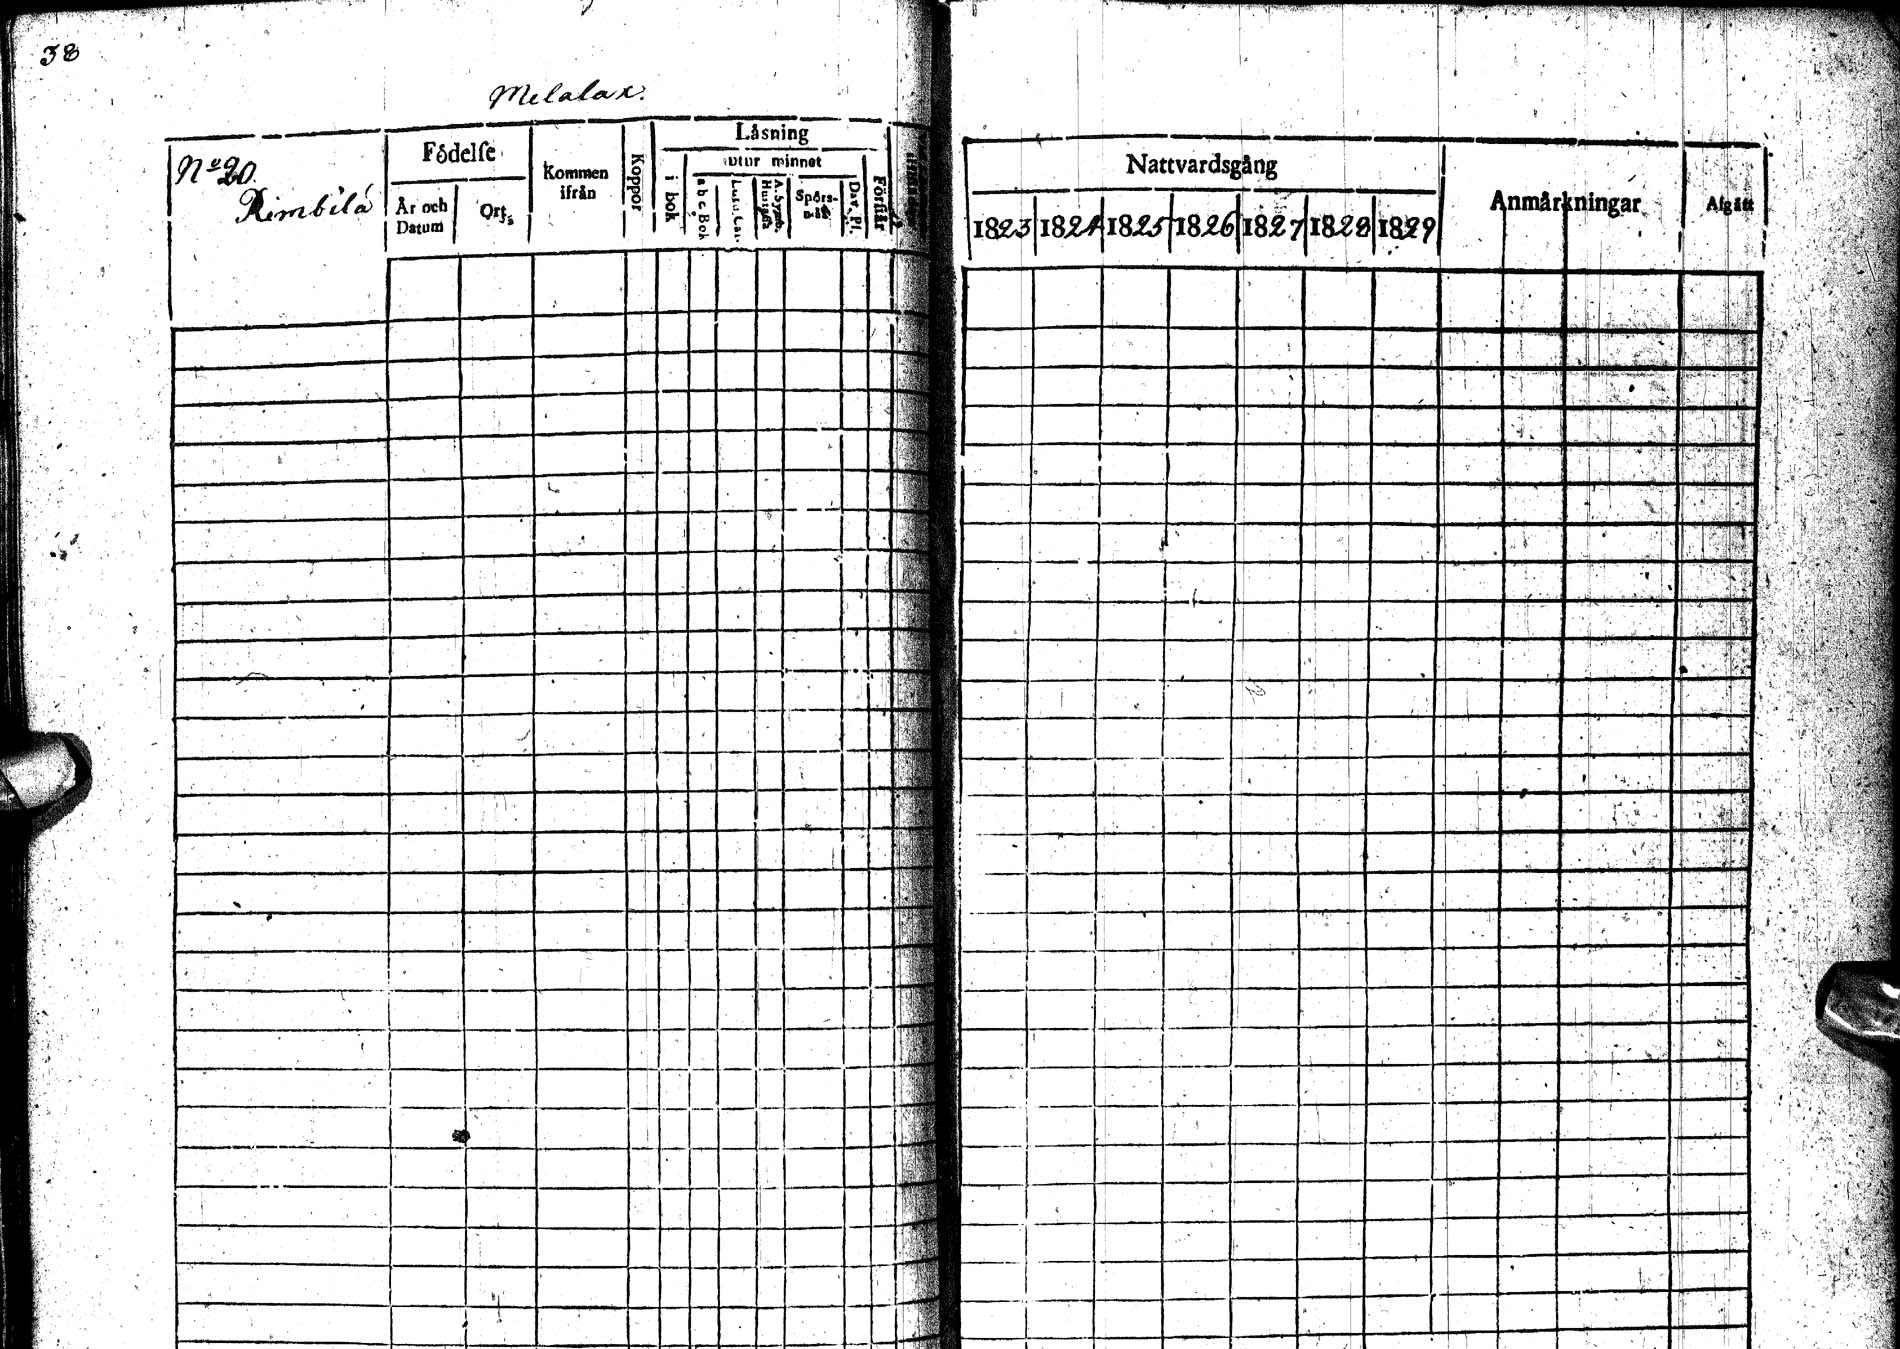 38
Melalax.
No 20.
Rimbilä
Födelse
År och
Datum
Ort
Kommen
ifrån
Koppor
Läsning
i bok
utur minnet
a b c Bok
A. Symb.
Spörs-
Dav. Ps.
Förstår
Nattvardsgång
1823 1824 1825 1826 1827 1828 1829
Anmärkningar
Afgått